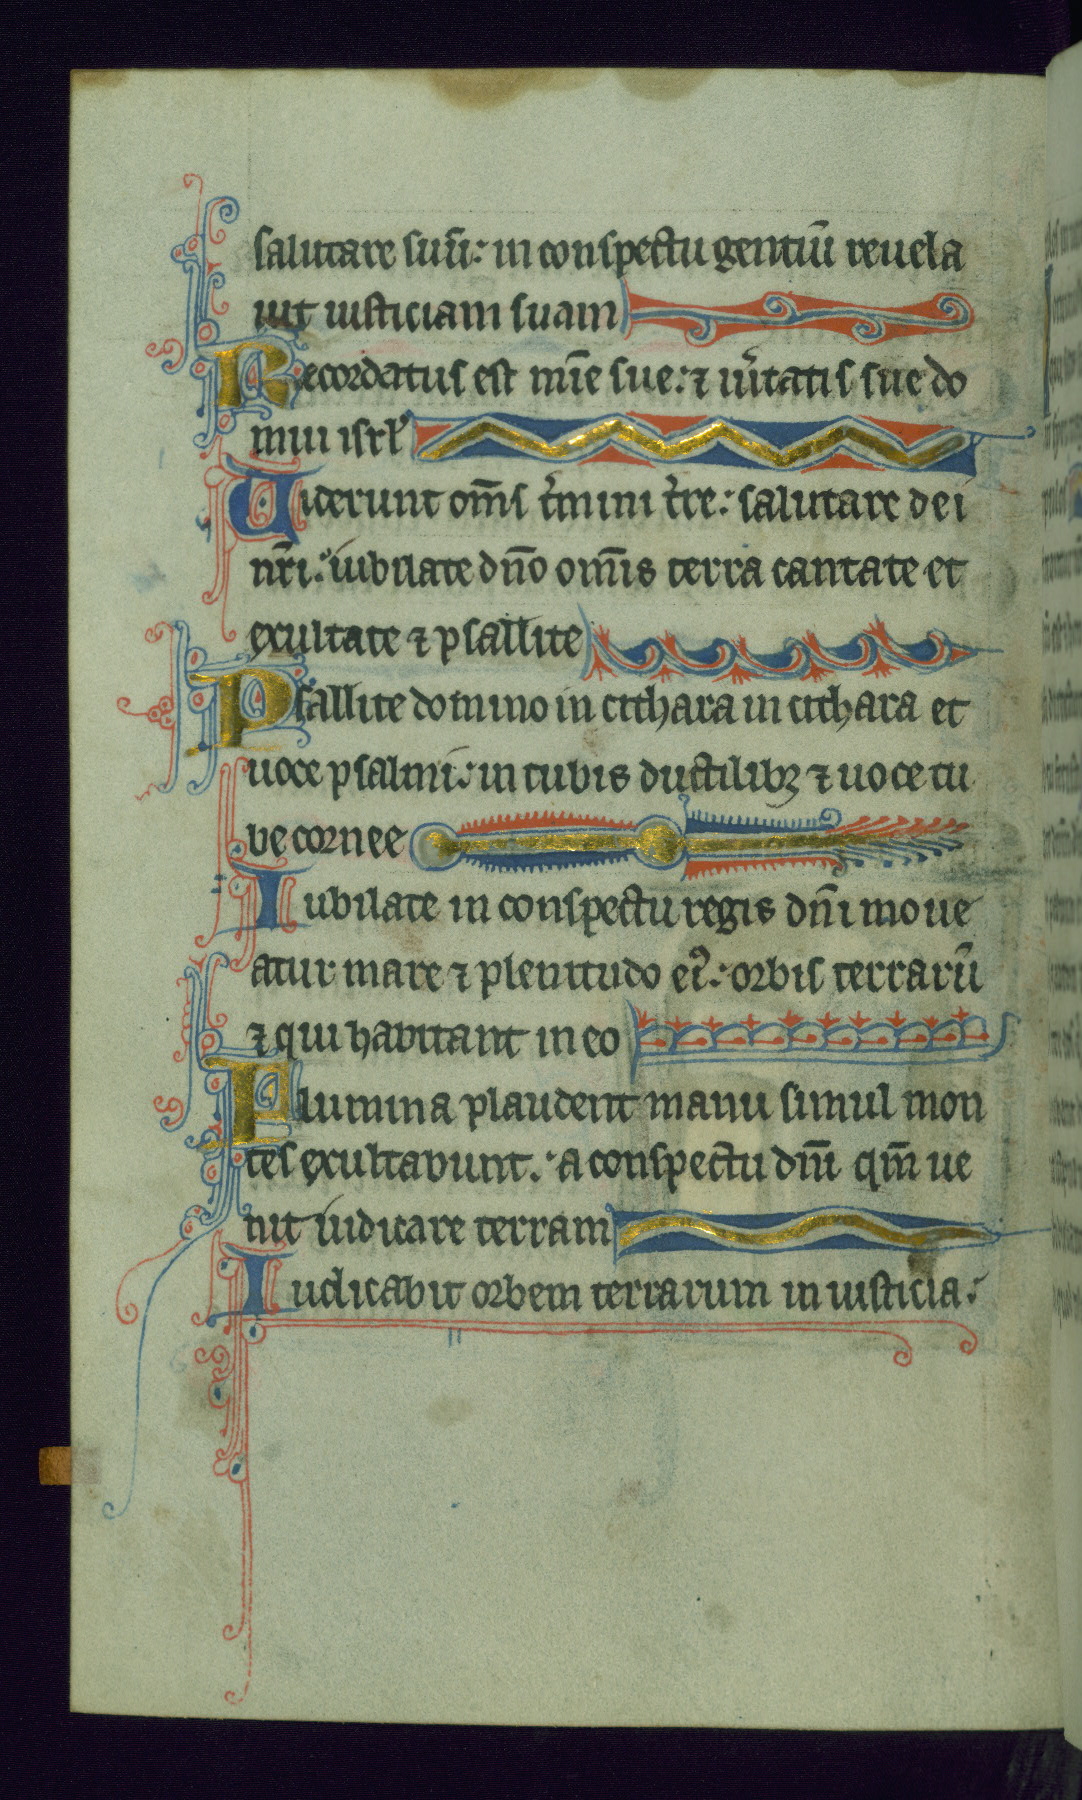 salutare suū: in conspectu gentiū reuela
uit iusticiam suam
Recordatus est mīe sue: ⁊ uītatis sue do
mui isrl'
Uiderunt om̄s t̄mini t̄re: salutare dei
nr̄i: iubilate dn̄o om̄is terra cantate et
exultate ⁊ psallite
Psallite domino in cithara in cithara et
uoce psalmi: in tubis ductilibꝫ ⁊ uoce tu
be cornee
Iubilate in conspectu regis dn̄i moue
atur mare ⁊ plenitudo ei᾿: orbis terrarū
⁊ qui habitant in eo
Flumina plaudent manu simul mon
tes exultabunt: a conspectu dn̄i qm̄ ue
nit iudicare terram
Iudicabit orbem terrarum in iusticia: